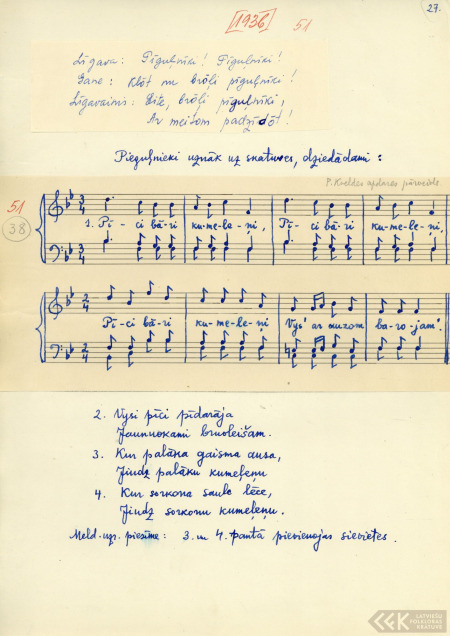 27.
[1936] 51
Līgava: Pīguļnīki! Pīguļnīki!
Gans: Klōt nu brōļi pīguļnīki!
Līgavainis: Eite, brōļi pīguļnīki,
Ar meitom padzīdōt!
Pieguļnieki uznāk uz skatuves, dziedādami:
P. Kveldes apdares pūrveids.
51
38
1. Pī-ci bā-ri ku-me-le-ņi, Pī-ci bā-ri ku-me-le-ņi,
Pī-ci bā-ri ku-me-le-ņi Vys' ar muzom ba-ro-jam'.
2. Vysi pīci pīdarāja
Jaunuokami bruoleišam.
3. Kur palāka gaisma ausa,
Jiudz palāku kumeļeņu
4. Kur sorkona saule lēce,
Jiudz sorkonu kumeļeņu.
Meld. uzr. piezīme: 3. un 4. pantā pievienojas sievietes.
LATVIEŠU
FOLKLORAS
KRĀTUVE